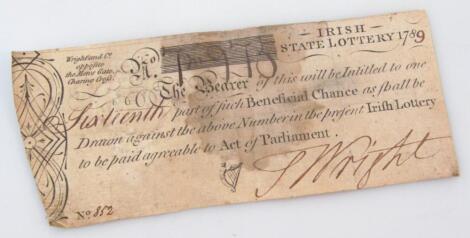 Wright and Co.
opposite
the Mews Gate,
Charing Cross.
IRISH
STATE LOTTERY 1789
No.
The Bearer of this will be Intitled to one
Sixteenth part of such Beneficial Chance as shall be
Drawn against the above Number in the present Irish Lottery
to be paid agreeable to Act of Parliament.
S Wright
No 852